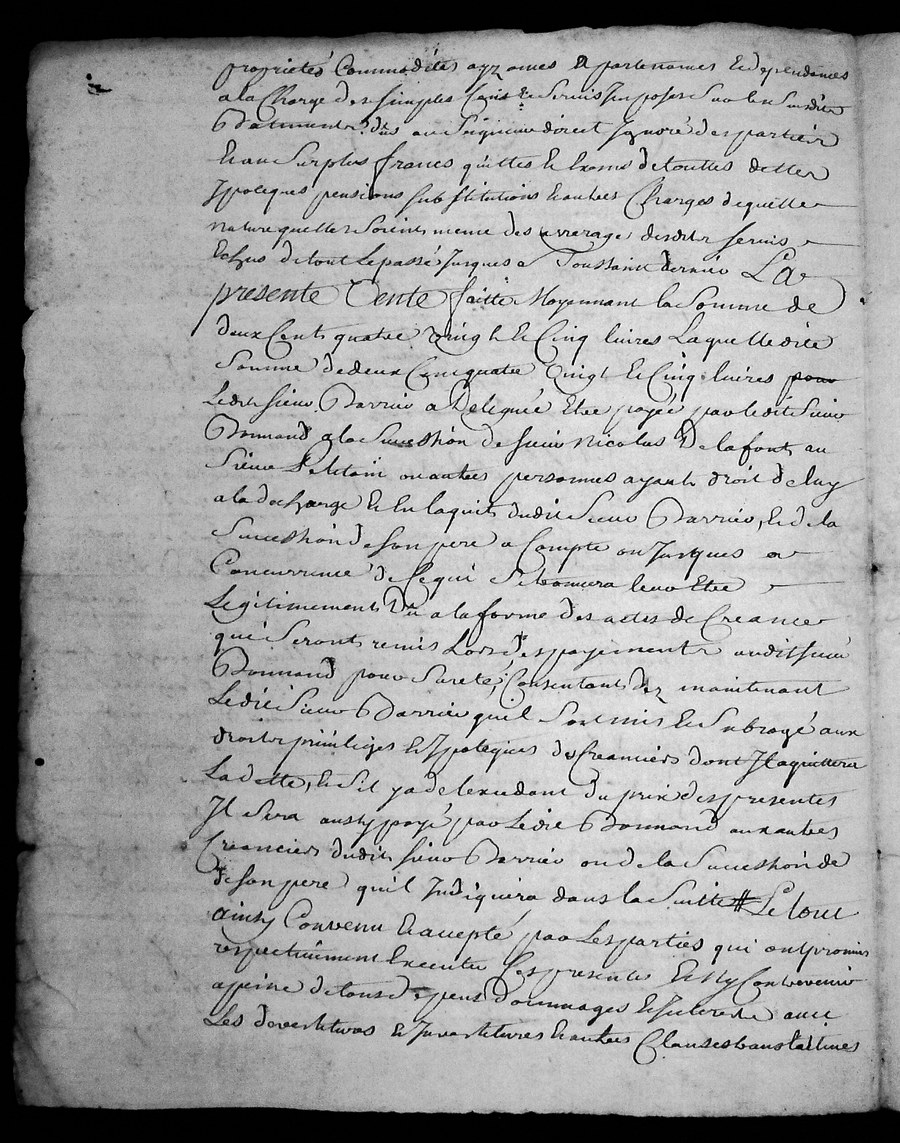 proprietés Commodités ayzances apartenances & dependances
a la Charge des simples Cens & Servis Imposés Sur les Susdits
Batiments dûs au Seigneur direct Ignoré des parties
& au Surplus francs quittes & Exems de touttes dettes
Ypoteques pensions substitutions & autres Charges de quelle
nature quelles Soient meme des arrerages desdits servis
Echus de tout le passé Jusques a Toussaint dernier La
presente Vente faitte Moyennant la Somme de
deux Cent quatre Vingt & Cinq livres Laquelle dite
Somme de deux Cent quatre Vingt & Cinq livres
Ledit sieur Barrieu a Deleguée Etre payée par ledit Sieur
Bonnand a la Succession de sieur Nicolas Delafont au
Sieur ou autres personnes ayants droit de luy
a la decharge & En laquit dudit Sieur Barrieu, & de la
Succession de son pere a Compte ou Jusques a
Concurrence de ce qui Se trouvera leur Etre
Legitimement Dû a la forme des actes de Creance
qui Seront remis Lors des payements audit sieur
Bonnand pour Sureté, Consentant Dez maintenant
Ledit Sieur Barrieu quil Soit mis & Subrogé aux
droits priviléges & Ypoteques des Creanciers dont Il aquittera
La dette, & Sil y a de lexcedant du prix des presentes
Il Sera aussy payé par Ledit Bonnand aux autres
Creanciers dudit sieur Barrieu ou de la Succession de
de son pere quil Indiquera dans la Suitte # Le tout
ainsy Convenu & accepté par Les parties qui ont promis
respectivement Executer Les presentes & ny Contrevenir
a peine de tous depens dommages & Interets avec
Les devestitures & Investitures & autres Clauses translatives